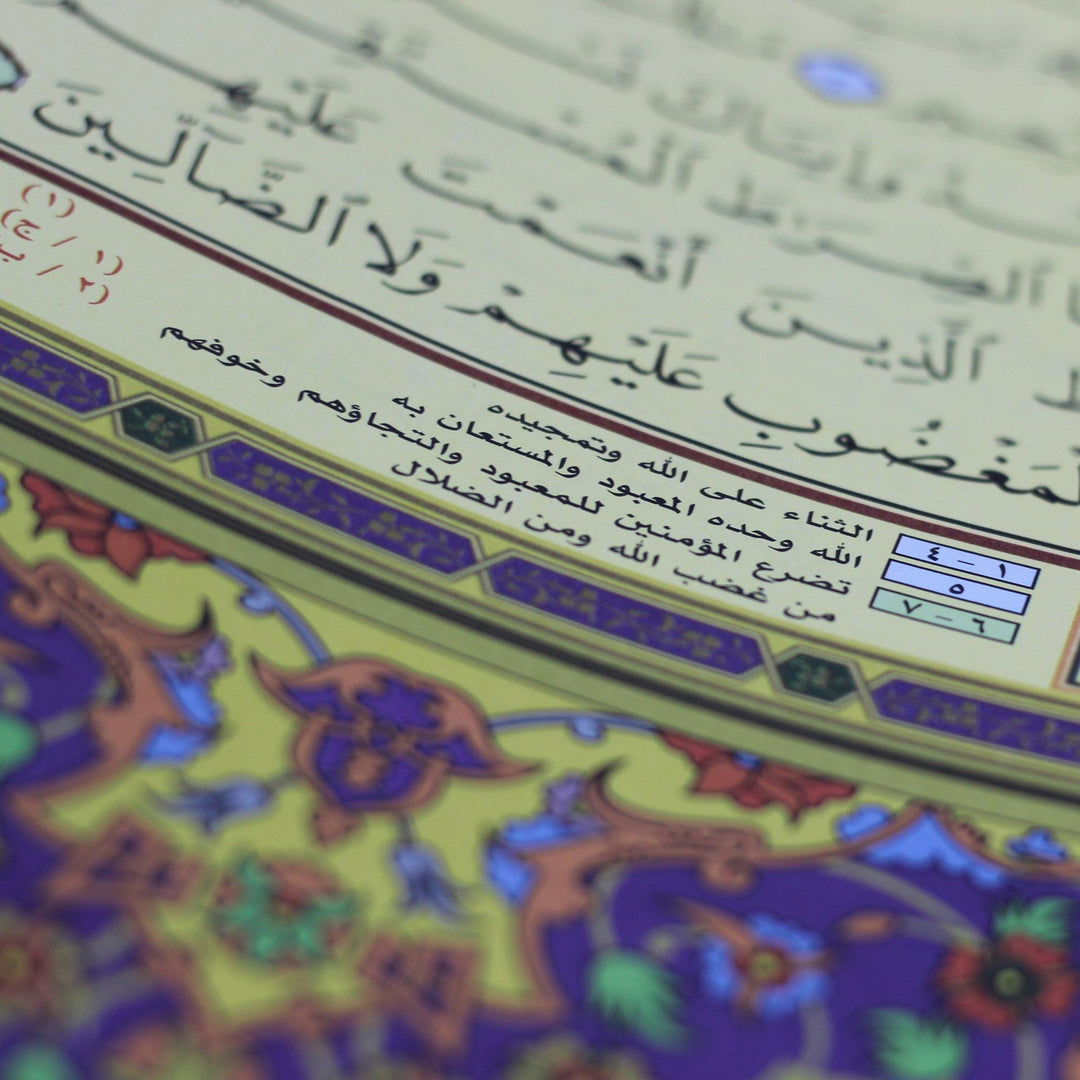 وَإِيَّاكَ
ٱلصِّرَٰطَ ٱلْمُسْتَقِـ
ٱلَّذِينَ أَنْعَمْتَ عَلَيْهِـ
لْمَغْضُوبِ عَلَيْهِمْ وَلَا ٱلضَّآلِّينَ
١ – ٤ الثناء على الله وتمجيده (١)
٥ الله وحده المعبود والمستعان به (١ / ج)
٦ – ٧ تضرع المؤمنين للمعبود والتجاؤهم وخوفهم (٢ / ب
من غضب الله ومن الضلال